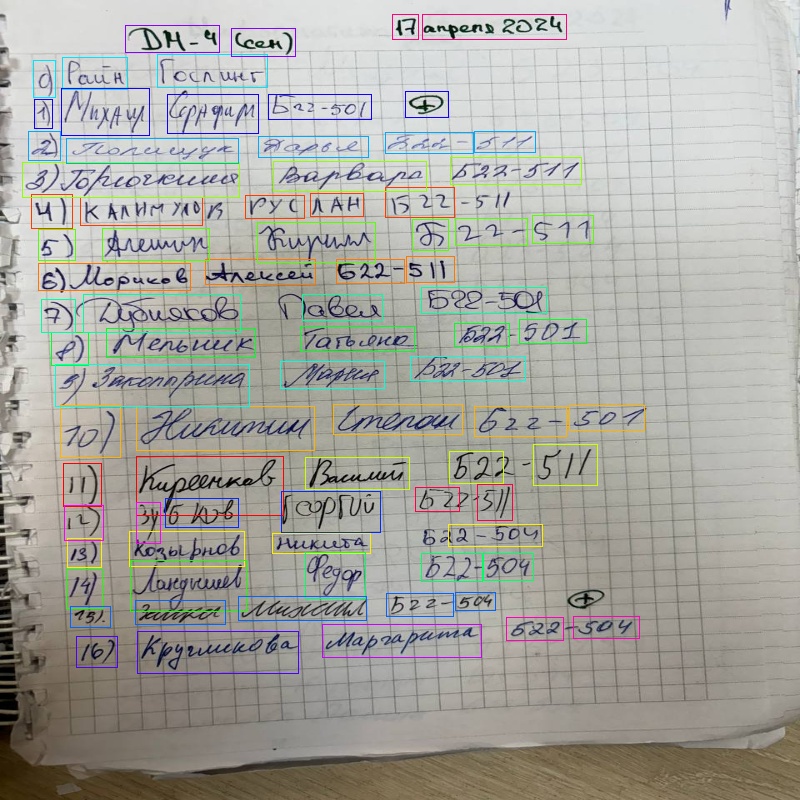 ДМ-4 (сем) 17 апреля 2024
0) Райн Гослинг
1) Михаил Серафим Б22-501 +
2) Полищук Дарья Б22-511
3) Горючкина Варвара Б22-511
4) КАЛИМУЛОВ РУСЛАН Б22-511
5) Алешин Кирилл Б22-511
6) Мориков Алексей Б22-511
7) Дубняков Павел Б22-501
8) Мельник Татьяна Б22-501
9) Мария Б22-501
10) Никитин Степан Б22-501
11) Киреенков Василий Б22-511
12) Зубков Георгий Б22-511
13) Козырнов Никита Б22-504
14) Ландышев Федор Б22-504
15). Заика Михаил Б22-504 +
16) Кругликова Маргарита Б22-504